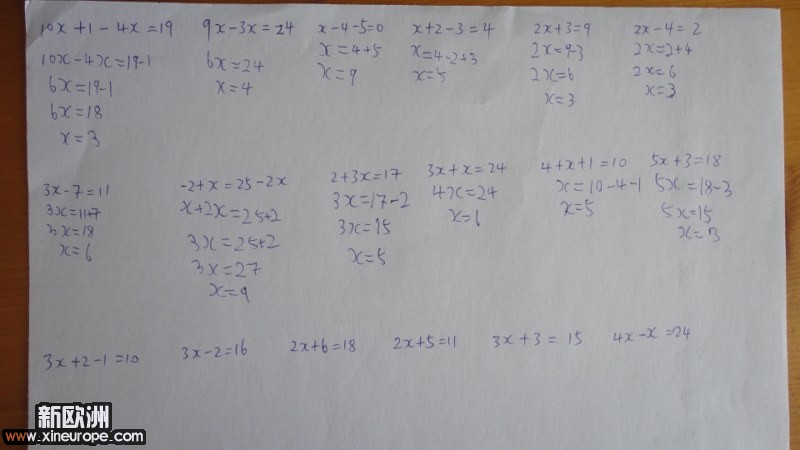 10x + 1 - 4x = 19
10x - 4x = 19-1
6x = 19-1
6x = 18
x = 3
9x - 3x = 24
6x = 24
x = 4
x - 4 - 5 = 0
x = 4+5
x = 9
x + 2 - 3 = 4
x = 4-2+3
x = 5
2x + 3 = 9
2x = 9-3
2x = 6
x = 3
2x - 4 = 2
2x = 2+4
2x = 6
x = 3
3x - 7 = 11
3x = 11+7
3x = 18
x = 6
-2 + x = 25 - 2x
x + 2x = 25+2
3x = 25+2
3x = 27
x = 9
2 + 3x = 17
3x = 17-2
3x = 15
x = 5
3x + x = 24
4x = 24
x = 6
4 + x + 1 = 10
x = 10-4-1
x = 5
5x + 3 = 18
5x = 18-3
5x = 15
x = 3
3x + 2 - 1 = 10
3x - 2 = 16
2x + 6 = 18
2x + 5 = 11
3x + 3 = 15
4x - x = 24
新欧洲
www.xineurope.com